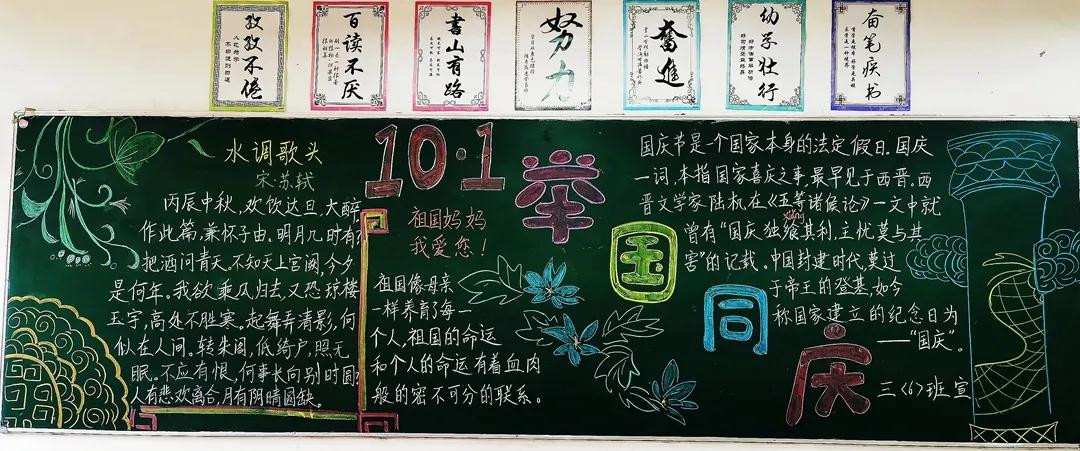 孜孜不倦
百读不厌
書山有路
努力
奮進
幼学壮行
奋笔疾书
水调歌头
宋·苏轼
丙辰中秋,欢饮达旦,大醉
作此篇,兼怀子由。明月几时有?
把酒问青天。不知天上宫阙,今夕
是何年。我欲乘风归去,又恐琼楼
玉宇,高处不胜寒。起舞弄清影,何
似在人间。转朱阁,低绮户,照无
眠。不应有恨,何事长向别时圆?
人有悲欢离合,月有阴晴圆缺。
10·1
祖国妈妈
我爱您!
祖国像母亲
一样养育了每一
个人,祖国的命运
和个人的命运有着血肉
般的密不可分的联系。
举国同庆
国庆节是一个国家本身的法定假日。国庆
一词,本指国家喜庆之事最早见于西晋。西
晋文学家陆机在《五等诸侯论》一文中就
曾有“国庆独飨其利,主忧莫与其
害”的记载。中国封建时代,莫过
于帝王的登基,如今
称国家建立的纪念日为
——“国庆”。
三〈6〉班宣